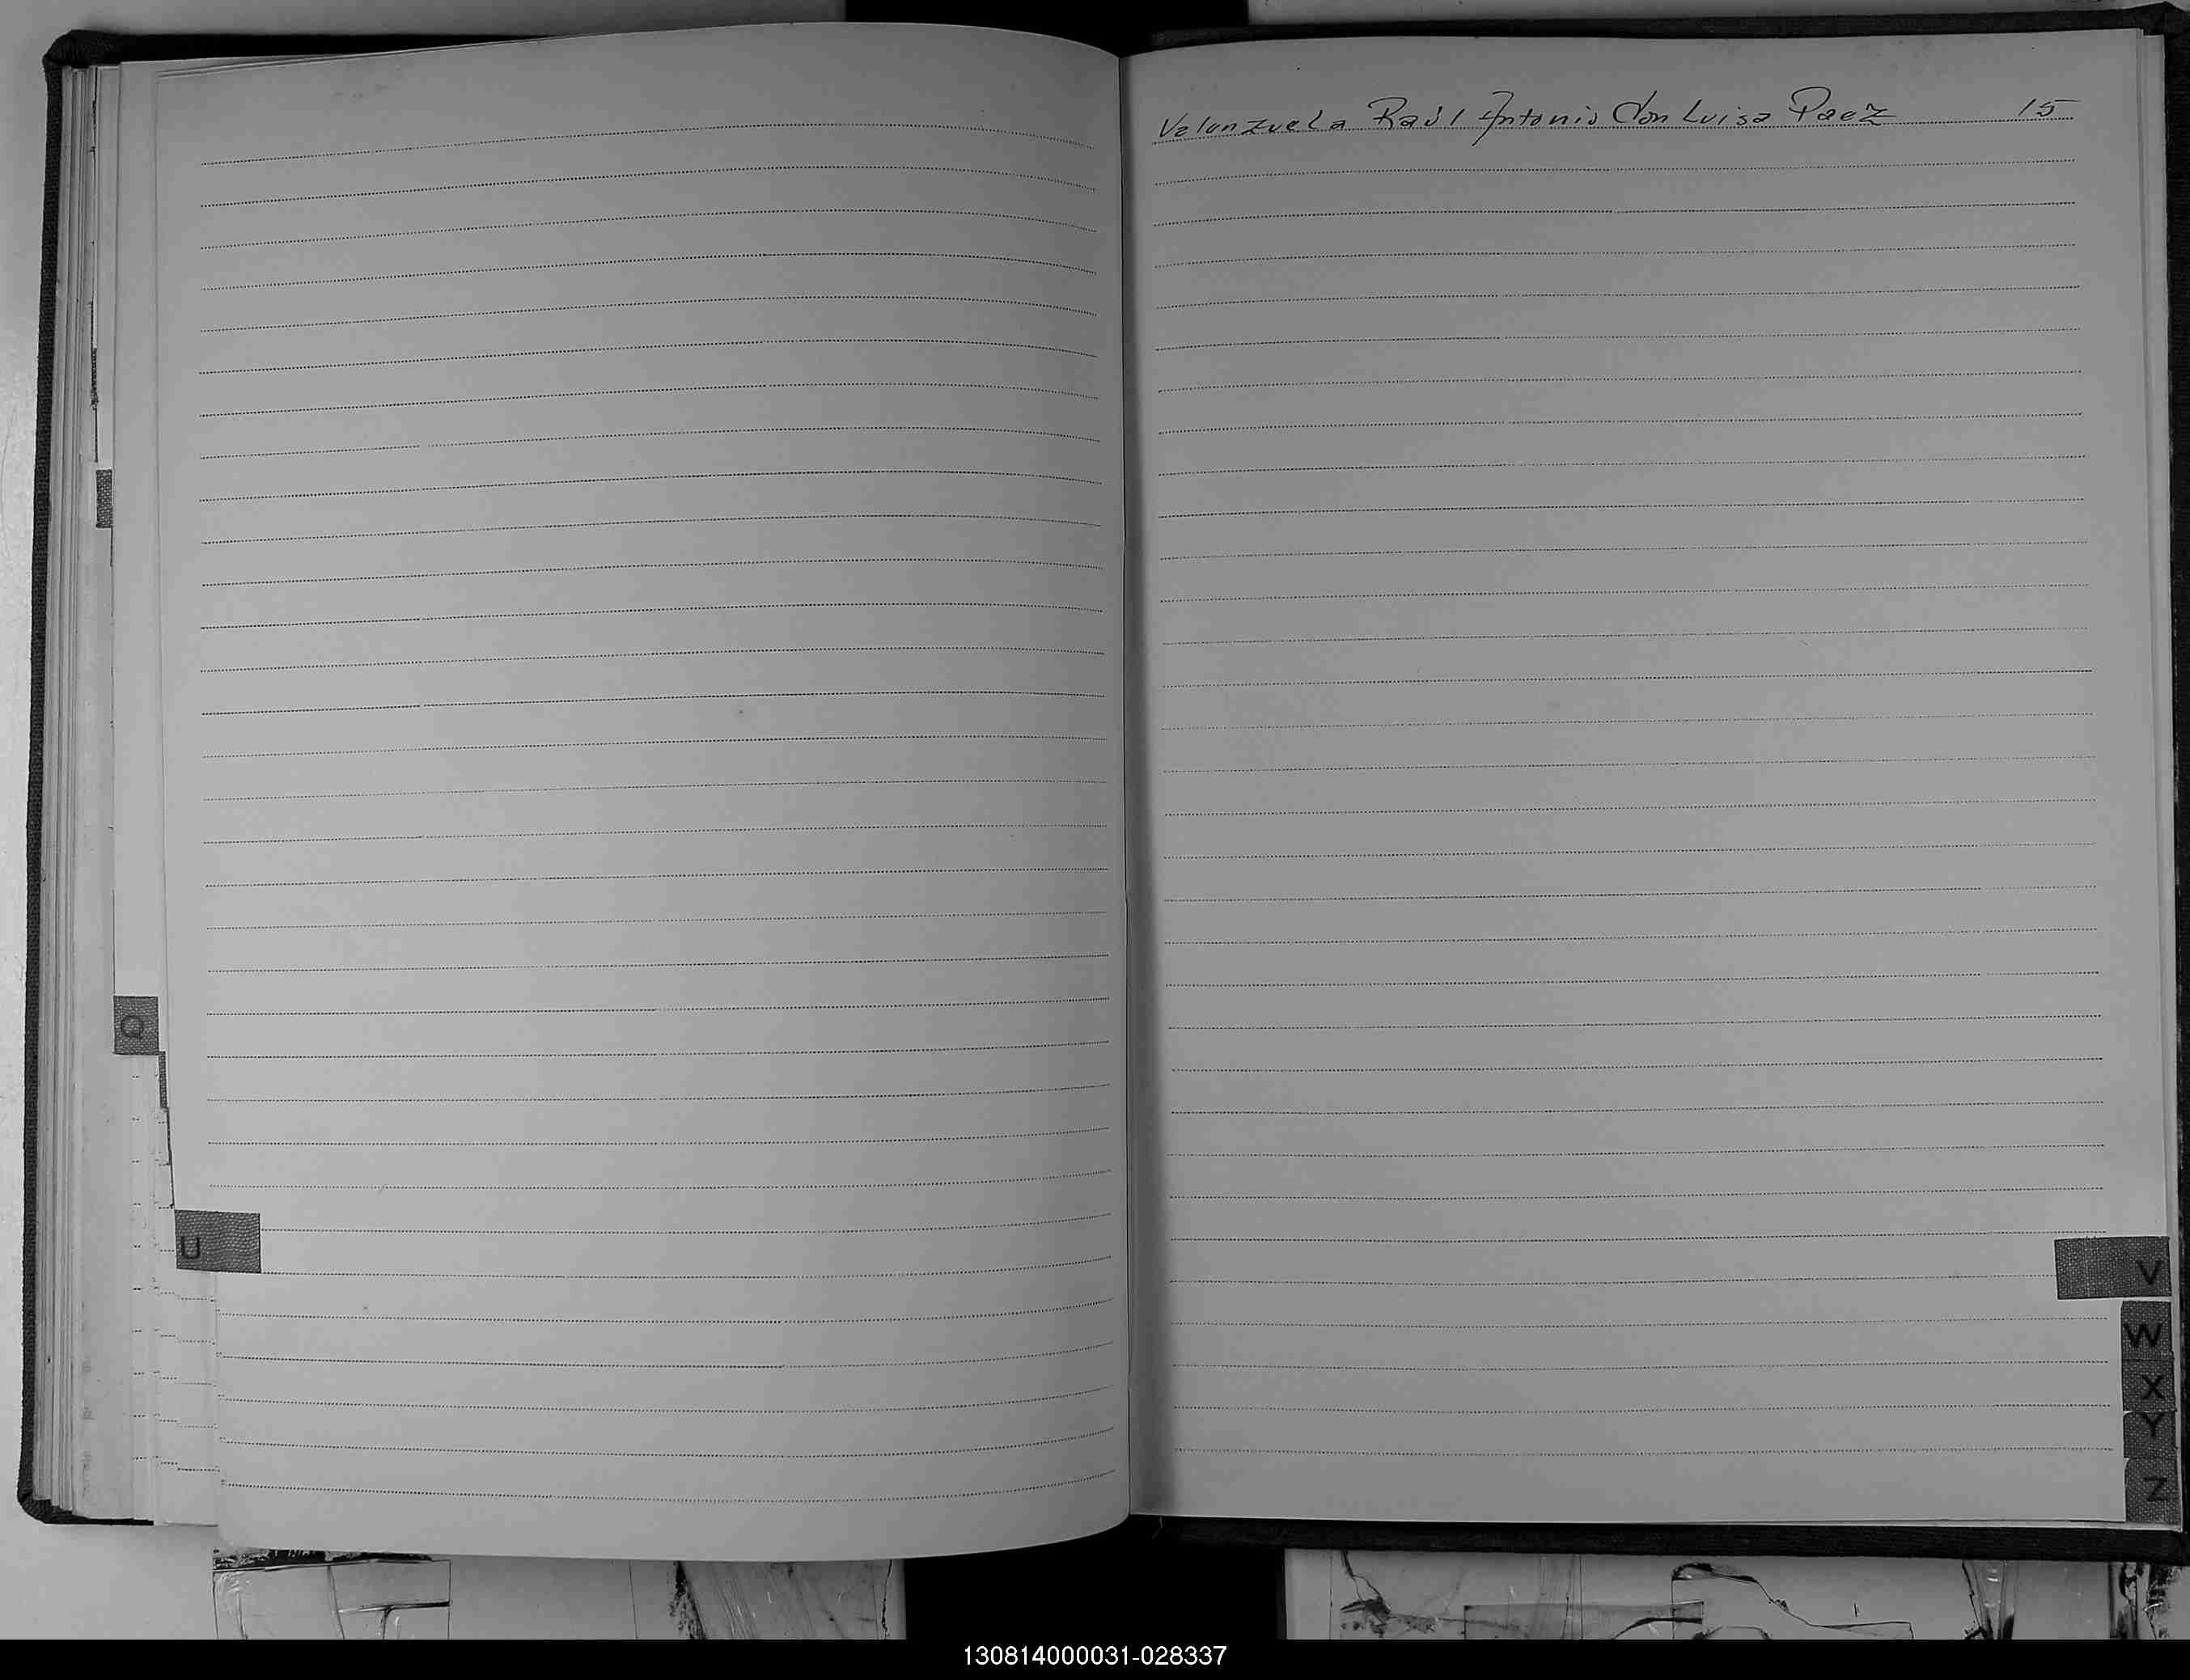 Valenzuela Raúl Antonio Con Luisa Paez 15
Q
U
V
W
X
Y
Z
130814000031-028337